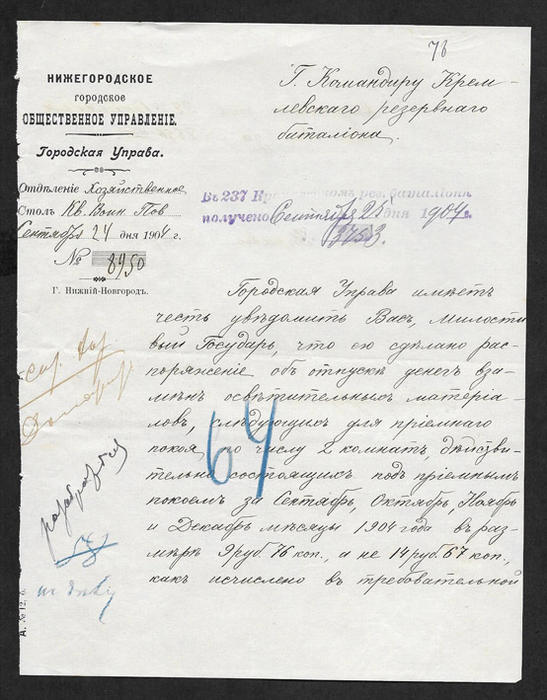 78
НИЖЕГОРОДСКОЕ
ГОРОДСКОЕ
ОБЩЕСТВЕННОЕ УПРАВЛЕНІЕ.
Городская Управа.
Отдѣленіе Хозяйственное
Столъ Кв. Воин. Пов
Сентябрь 24 дня 1904 г.
№ 8950
Г. Нижній-Новгородъ.
Г. Командиру Крем-
левскаго резервнаго
баталіона.
Въ 237 рез. баталіонъ
получено Сентября дня 1904 г.
Городская Управа имѣетъ
честь увѣдомить Васъ, Милости
вый Государь, что ею сдѣлано рас-
поряженіе объ отпускѣ денегъ вза-
мѣнъ освѣтительныхъ матеріа-
ловъ, слѣдующихъ для пріемнаго
покоя, по числу 2 комнатъ, дѣйстви-
тельно состоящихъ подъ пріемнымъ
покоемъ за Сентябрь, Октябрь, Ноябрь
и Декабрь мѣсяцы 1904 года въ раз-
мѣрѣ 9 руб. 76 коп., а не 14 руб. 67 коп.,
какъ исчислено въ требовательной
64
А. № 12